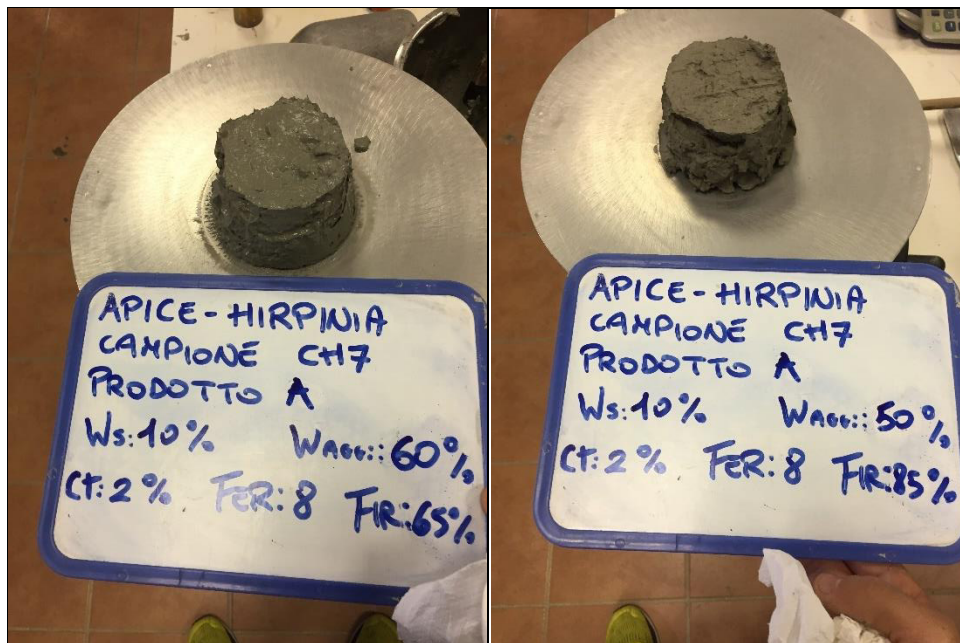 APICE-HIRPINIA
CAMPIONE CH7
PRODOTTO A
Ws:10% WAGG.: 60%
Ct:2% FER:8 FIR:65%
APICE-HIRPINIA
CAMPIONE CH7
PRODOTTO A
Ws:10% WAGG.: 50%
Ct:2% FER:8 FIR:85%